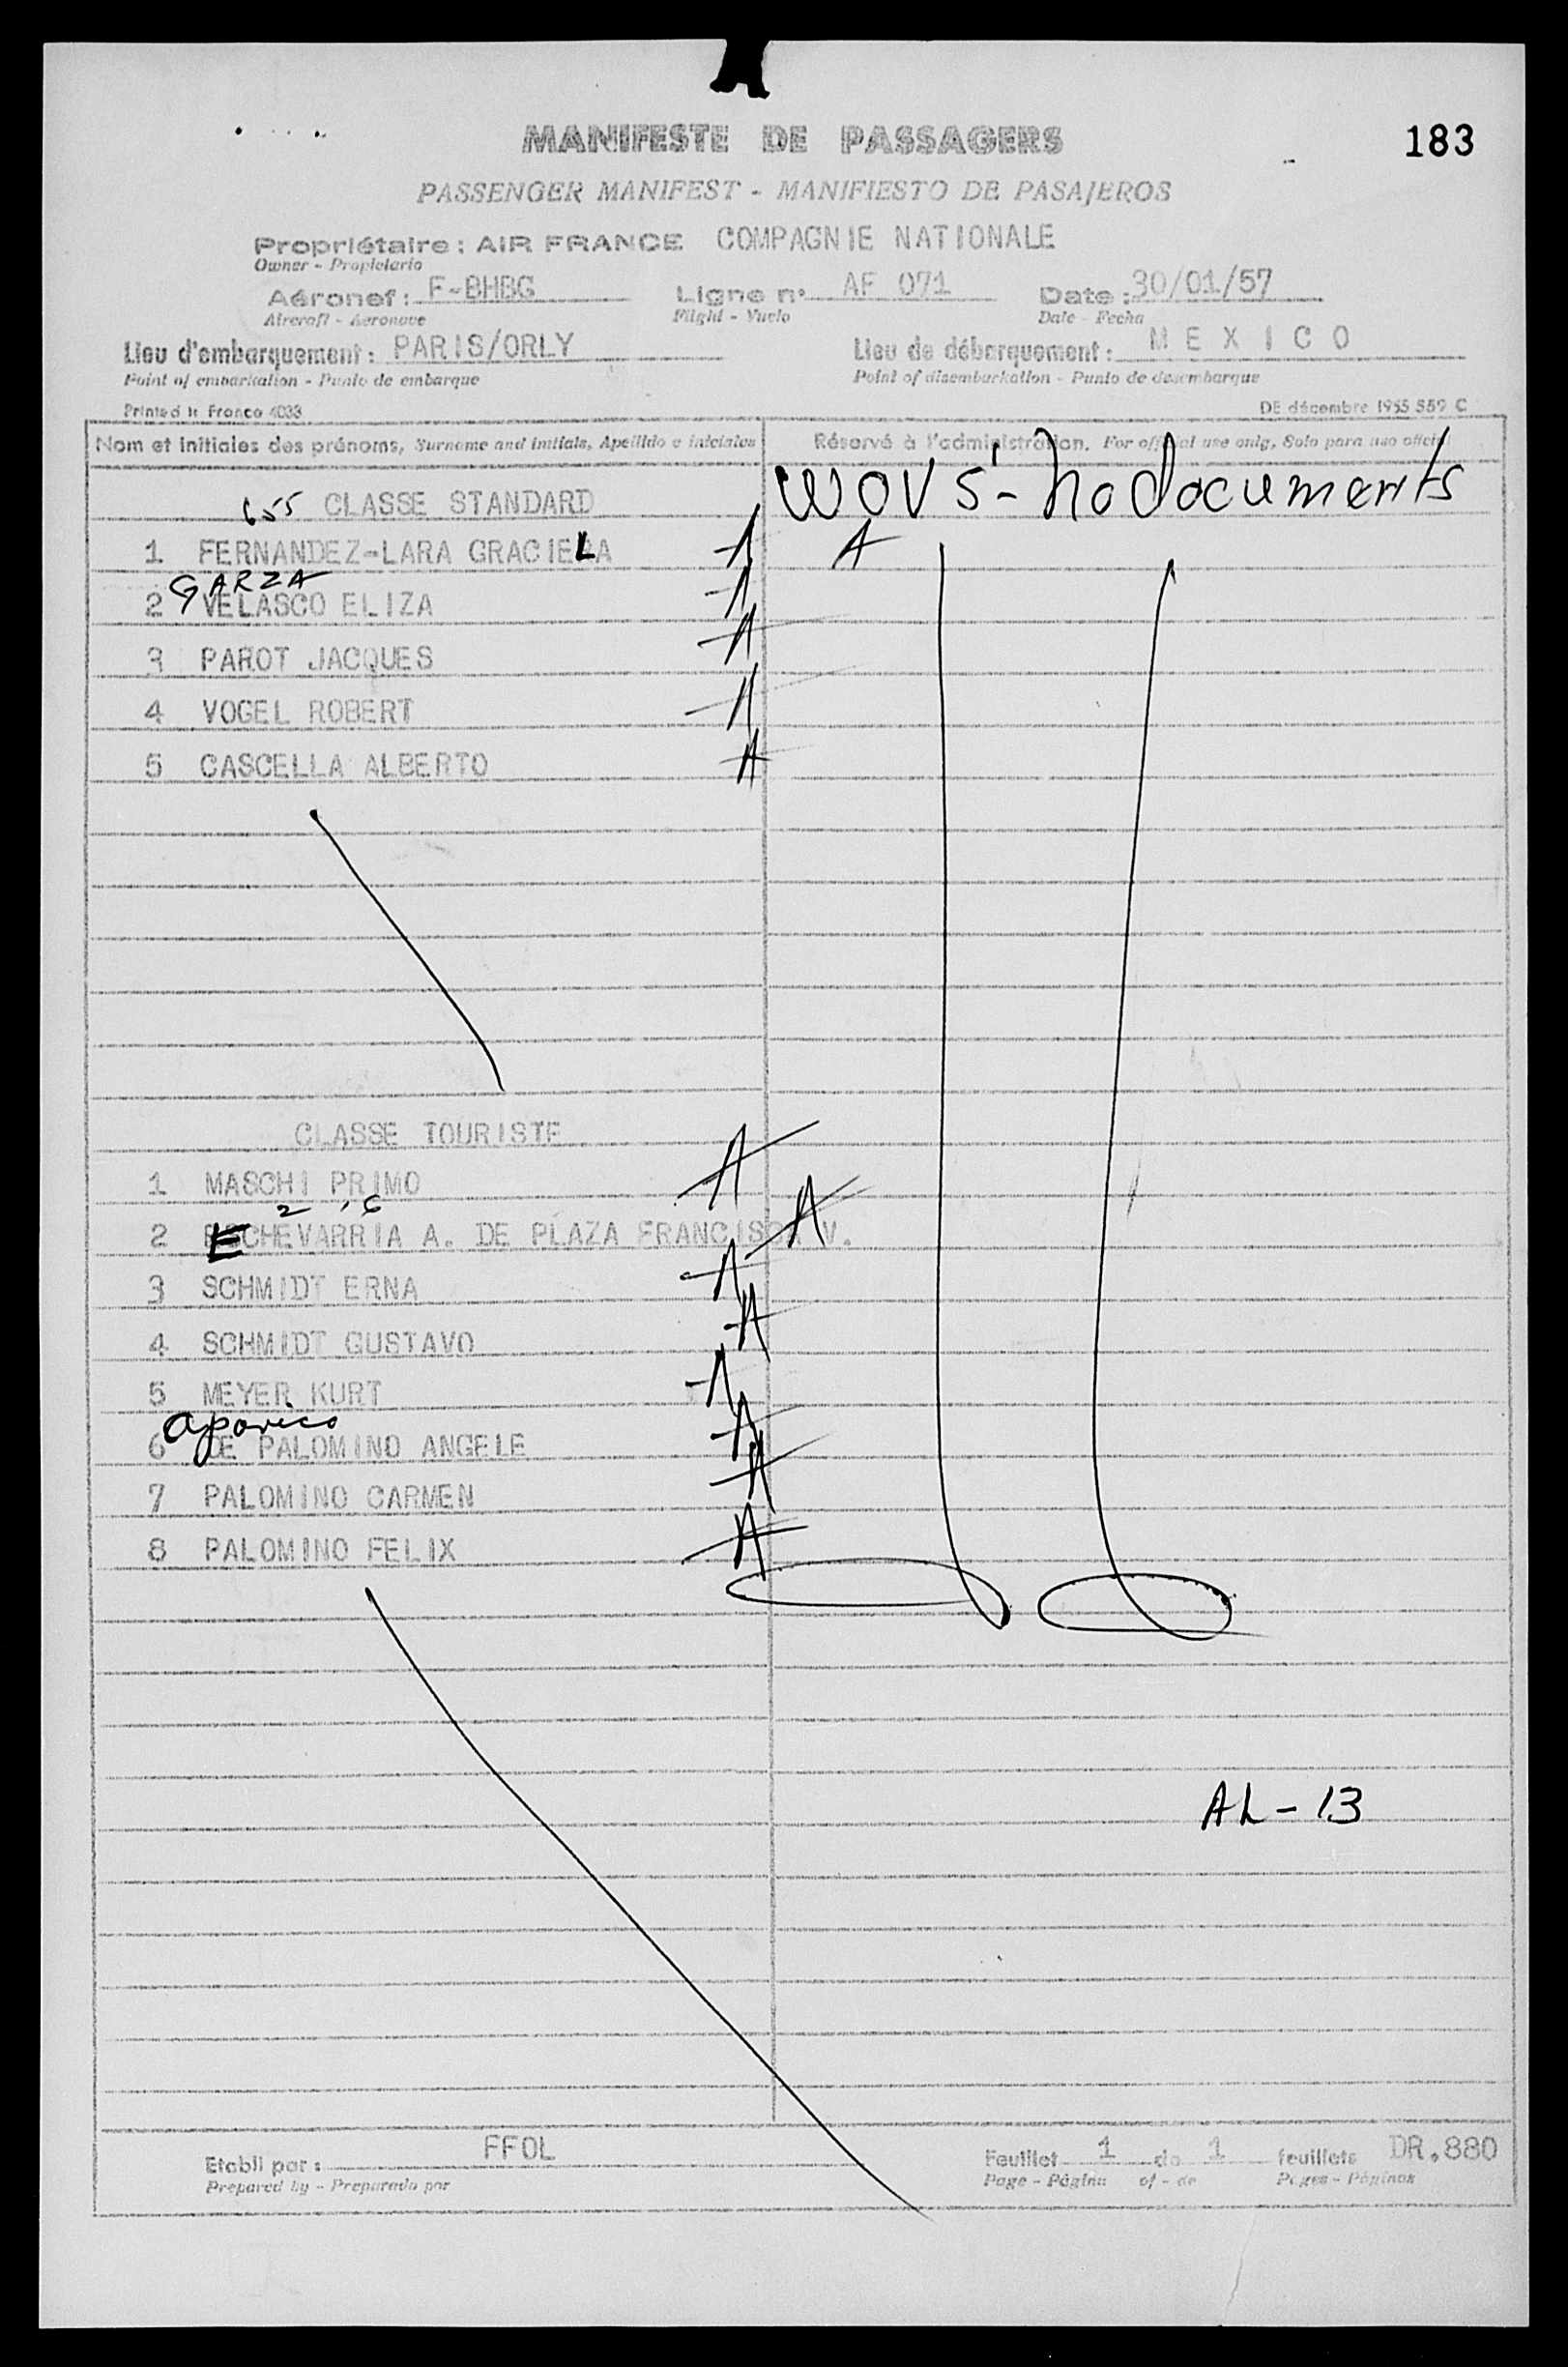 MANIFESTE DE PASSAGERS
183
PASSENGER MANIFEST - MANIFIESTO DE PASAJEROS
Propriétaire : AIR FRANCE COMPAGNIE NATIONALE
Owner - Propietario
Aéronef : F-BHBG Ligne n° AF 071 Date : 30/01/57
Aircraft - Aeronave Flight - Vuelo Date - Fecha
Lieu d'embarquement : PARIS/ORLY Lieu de débarquement : MEXICO
Point of embarkation - Punto de embarque Point of disembarkation - Punto de desembarque
Printed in France 4033 DE décembre 1955 559 C
Nom et initiales des prénoms, Surname and initials, Apellido e iniciales Réservé à l'administration. For official use only, Solo para uso oficial
655 CLASSE STANDARD WOVS - no documents
1 FERNANDEZ-LARA GRACIELA A A
GARZA
2 VELASCO ELIZA A
3 PAROT JACQUES A
4 VOGEL ROBERT A
5 CASCELLA ALBERTO A
CLASSE TOURISTE
1 MASCHI PRIMO A
2 ECHEVARRIA A. DE PLAZA FRANCISCA V. A
3 SCHMIDT ERNA A
4 SCHMIDT GUSTAVO A
5 MEYER KURT A
6 DE PALOMINO ANGELE A
7 PALOMINO CARMEN A
8 PALOMINO FELIX A
AL - 13
Etabli par : FFOL Feuillet 1 de 1 feuillets DR.880
Prepared by - Preparado por Page - Página of - de Pages - Páginas